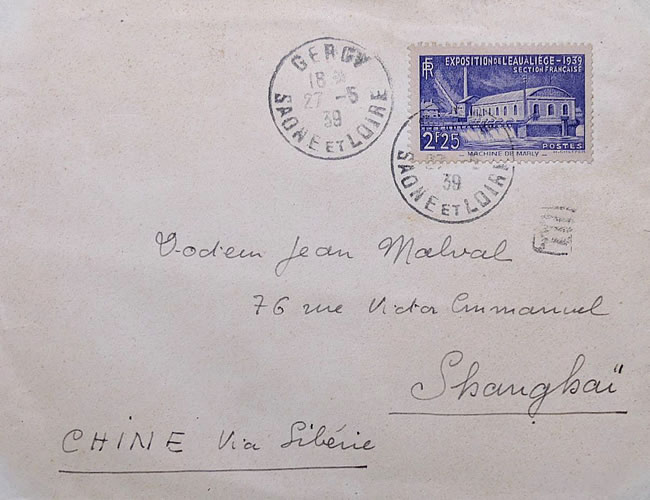 GERGY
18 *
27 -5
39
SAONE ET LOIRE
RF
EXPOSITION DE L'EAU LIÈGE - 1939
SECTION FRANÇAISE
2F25
POSTES
MACHINE DE MARLY
39
SAONE ET LOIRE
Jean Malval
76 rue Victor Emmanuel
Shanghaï
CHINE Via Sibérie